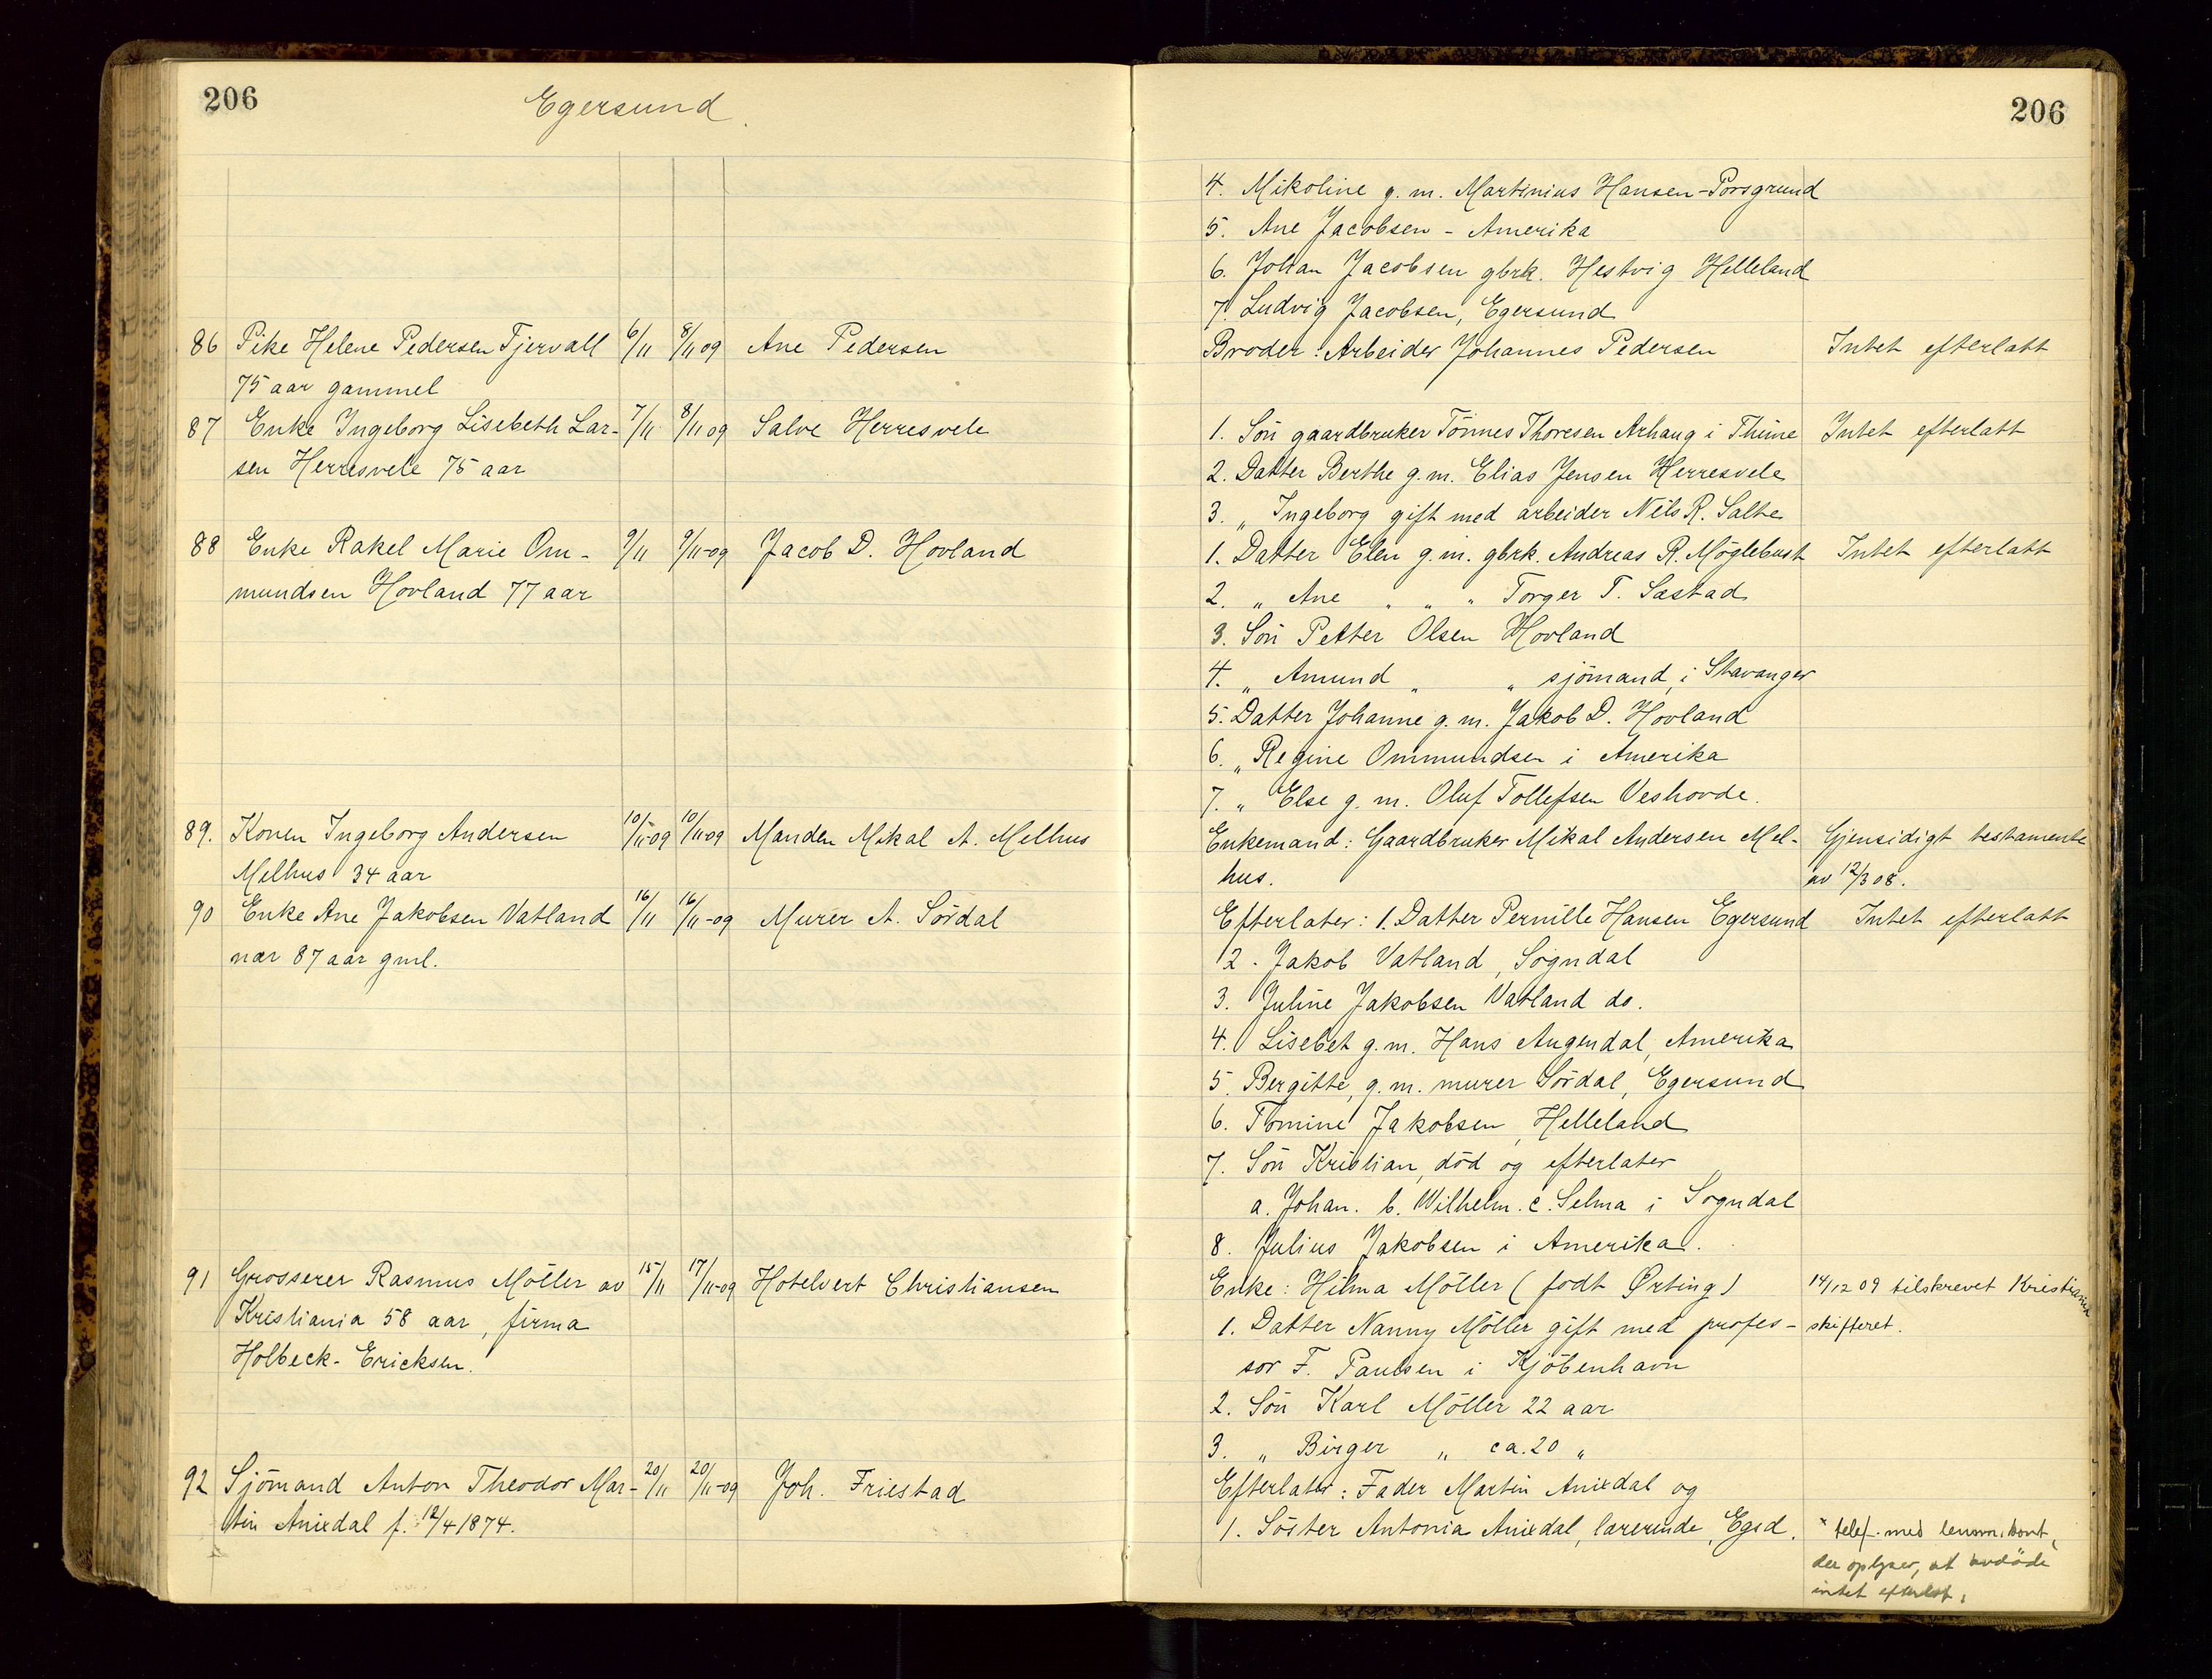 206
Egersund
206
4. Mikoline g. m. Martinius Hansen - Porsgrund
5. Ane Jacobsen - Amerika
6. Johan Jacobsen gbrk. Hestvig Helleland
7. Ludvig Jacobsen, Egersund
86 Pike Helene Pedersen Tjervall 6/11 8/11 09 Ane Pedersen Broder: Arbeider Johannes Pedersen Intet efterlatt
75 aar gammel
87 Enke Ingeborg Lisebeth Lar- 7/11 8/11 09 Salve Herresvele 1. Søn gaardbruker Tönnes Thoresen Århaug i Thime Intet efterlatt
sen Herresvele 75 aar 2. Datter Berthe g. m. Elias Jensen Herresvele
3. " Ingeborg gift med arbeider Nils R. Salte
88 Enke Rakel Marie Om- 9/11 9/11-09 Jacob D. Hovland 1. Datter Elen g. m. gbrk. Andreas R. Möglebust Intet efterlatt
mundsen Hovland 77 aar 2. " Ane " " " Torger T. Sæstad
3. Sön Petter Olsen Hovland
4. " Amund " " sjömand, i Stavanger
5. Datter Johanne g. m. Jakob D. Hovland
6. " Regine Ommundsen i Amerika
7. " Else g. m. Oluf Tollefsen Veshovde.
89. Konen Ingeborg Andersen 10/11-09 10/11-09 Manden Mikal A. Melhus Enkemand: Gaardbruker Mikal Andersen Mel- Gjensidigt testamente
Melhus 34 aar hus. av 12/3 08.
90 Enke Ane Jakobsen Vatland 16/11 16/11-09 Murer A. Sördal Efterlater: 1. Datter Pernille Hansen Egersund Intet efterlatt
nær 87 aar gml. 2. Jakob Vatland, Sogndal
3. Juline Jakobsen Vatland do.
4. Lisebet g. m. Hans Augendal, Amerika
5. Bergitte, g. m. murer Sördal, Egersund
6. Tomine Jakobsen, Helleland
7. Sön Kristian, död og efterlater
a. Johan. b. Wilhelm. c. Selma i Sogndal
8. Julius Jakobsen i Amerika.
91 Grosserer Rasmus Möller av 15/11 17/11-09 Hotelvert Christiansen Enke: Hilma Möller (født Ørting) 14/12 09 tilskrevet Kristiania
Kristiania 58 aar, firma 1. Datter Nanny Möller gift med profes- skifteret.
Holbeck-Ericksen. sor F. Paulsen i Kjöbenhavn
2. Sön Karl Möller 22 aar
3. " Birger " ca. 20 "
92 Sjömand Anton Theodor Mar- 20/11 20/11-09 Joh. Friestad Efterlater: Fader Martin Anixdal og
tin Anixdal f. 12/4 1874. 1. Söster Antonia Anixdal, lærerinde, Egsd.
telef. med lensm. kont.
der oplyser, at avdöde
intet efterlot.